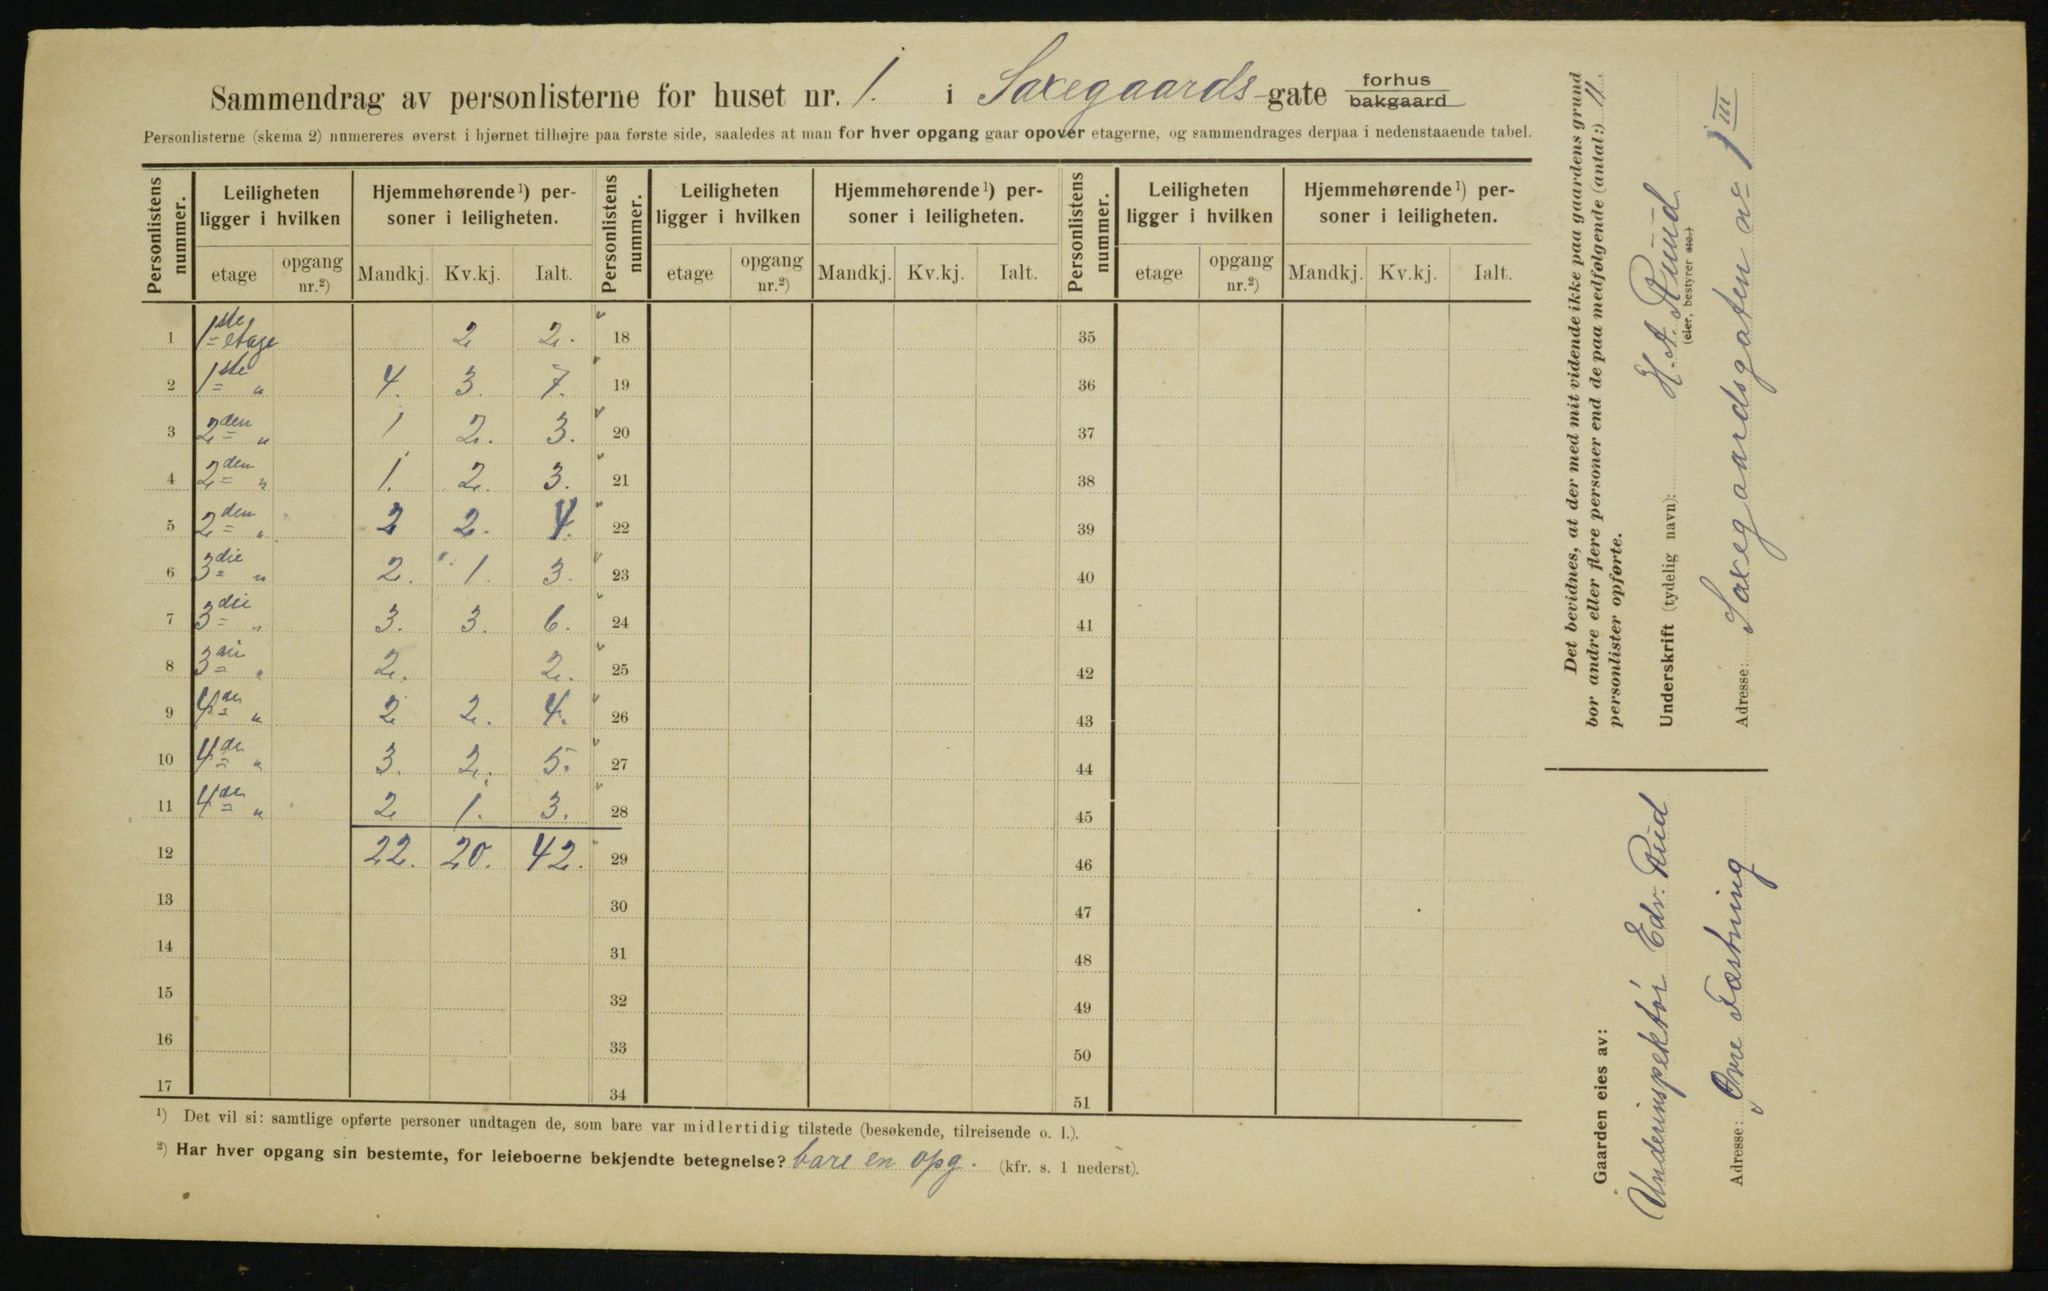 Sammendrag av personlisterne for huset nr. 1. i Saxegaards-gate forhus bakgaard
Personlisterne (skema 2) numereres øverst i hjørnet tilhøjre paa første side, saaledes at man for hver opgang gaar opover etagerne, og sammendrages derpaa i nedenstaaende tabel.
Personlistens nummer. Leiligheten ligger i hvilken Hjemmehørende¹) personer i leiligheten. Personlistens nummer. Leiligheten ligger i hvilken Hjemmehørende¹) personer i leiligheten. Personlistens nummer. Leiligheten ligger i hvilken Hjemmehørende¹) personer i leiligheten.
etage opgang nr.²) Mandkj. Kv.kj. Ialt. etage opgang nr.²) Mandkj. Kv.kj. Ialt. etage opgang nr.²) Mandkj. Kv.kj. Ialt.
1 1ste etage 2 2. 18 35
2 1ste " 4. 3. 7. 19 36
3 2den " 1 2. 3. 20 37
4 2den " 1. 2. 3. 21 38
5 2den " 2 2. 4. 22 39
6 3die " 2. 1. 3. 23 40
7 3die " 3. 3. 6. 24 41
8 3die " 2. 2. 25 42
9 4de " 2 2. 4. 26 43
10 4de " 3. 2. 5. 27 44
11 4de " 2 1. 3. 28 45
12 22. 20. 42. 29 46
13 30 47
14 31 48
15 32 49
16 33 50
17 34 51
¹) Det vil si: samtlige opførte personer undtagen de, som bare var midlertidig tilstede (besøkende, tilreisende o. l.).
²) Har hver opgang sin bestemte, for leieboerne bekjendte betegnelse? bare en opg. (kfr. s. 1 nederst).
Det bevidnes, at der med mit vidende ikke paa gaardens grund
bor andre eller flere personer end de paa medfølgende (antal:) 11.
personlister opførte.
Underskrift (tydelig navn): H. A. Ruud
(eier, bestyrer etc.)
Adresse: Saxegaardsgaten no 1 III
Gaarden eies av:
Underinspektør Edv. Ruud
Adresse: Øvre Fæstning